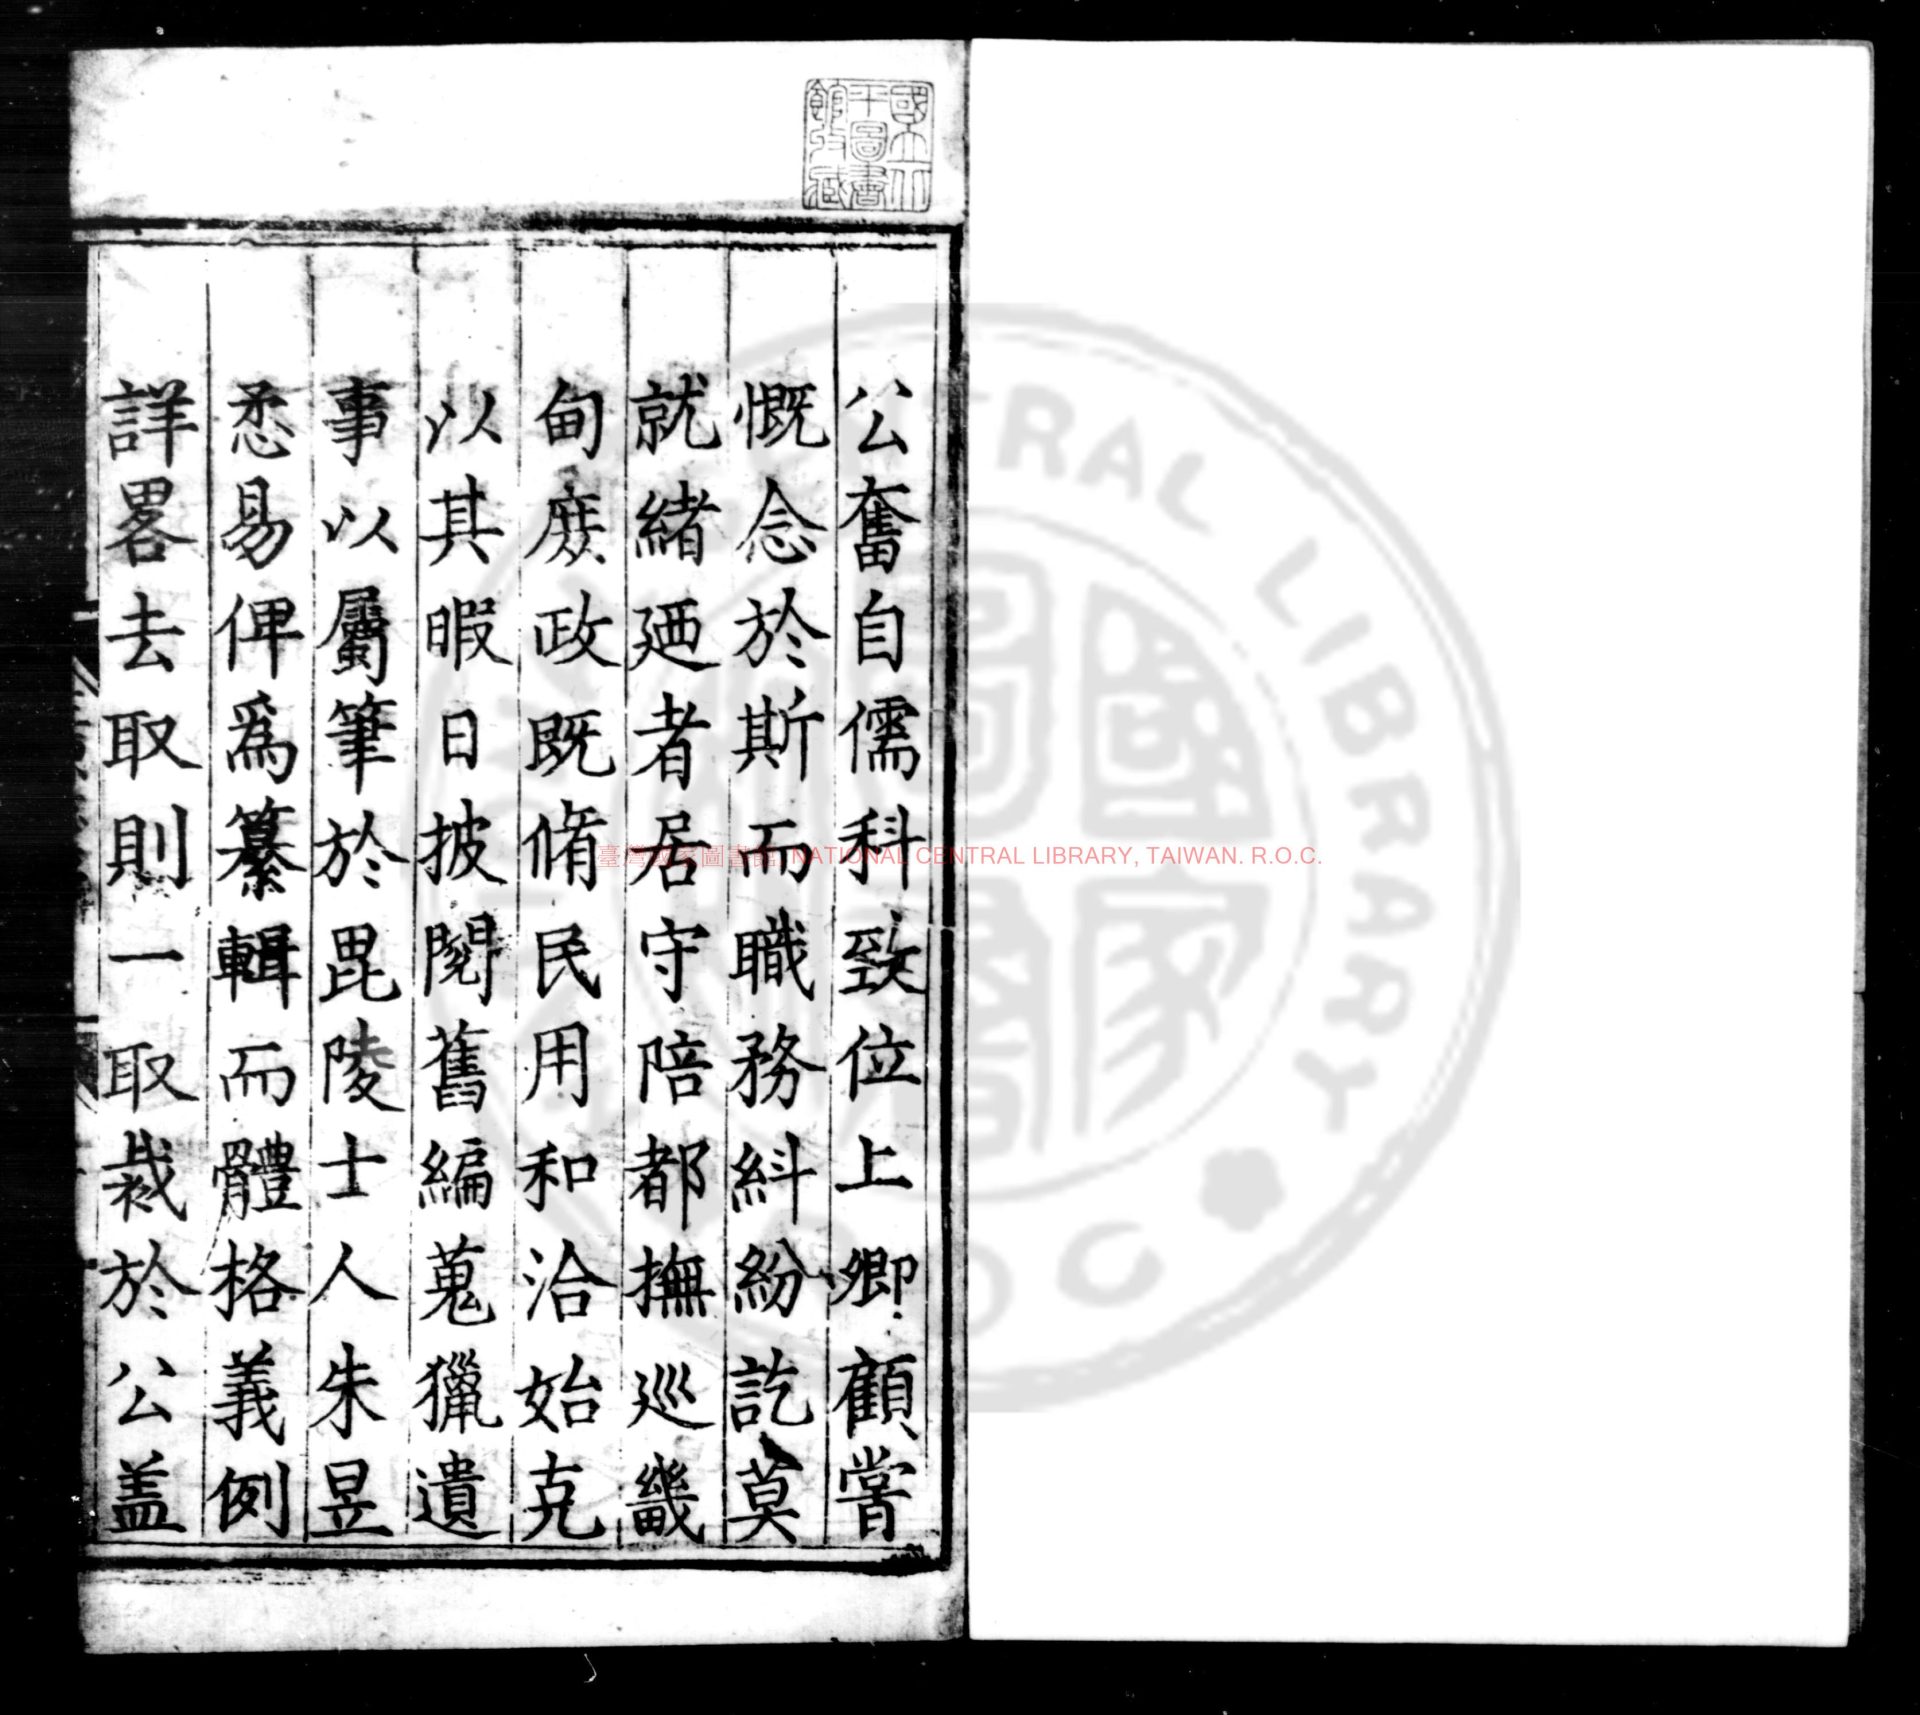 國立北
平圖書
館收藏
公奮自儒科致位上卿顧嘗
慨念於斯而職務糾紛訖莫
就緒廼者居守陪都撫巡畿
甸庶政既脩民用和洽始克
以其暇日披閱舊編蒐獵遺
事以屬筆於毘陵士人朱昱
悉易俾爲纂輯而體格義例
詳畧去取則一取裁於公盖
臺灣國家圖書館, NATIONAL CENTRAL LIBRARY, TAIWAN. R.O.C.